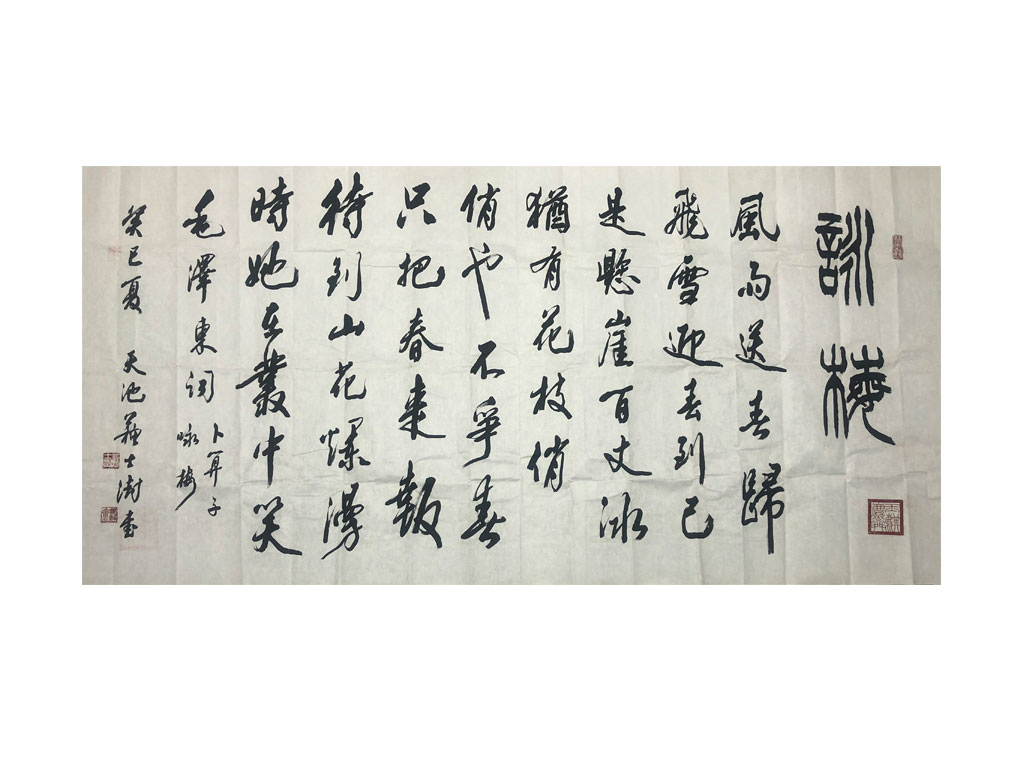 詠梅
風雨送春歸
飛雪迎春到已
是懸崖百丈冰
猶有花枝俏
俏也不爭春
只把春來報
待到山花爛漫
時她在叢中笑
毛澤東詞
卜算子
咏梅
癸巳夏 天池蘇士澍書